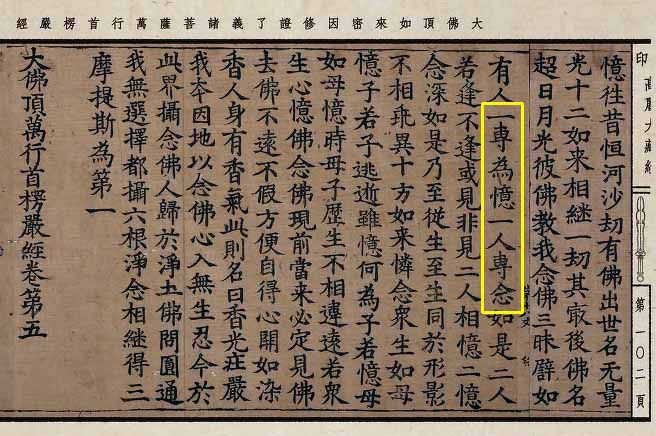 大佛頂如來密因修證了義諸菩薩萬行首楞嚴經
高麗大藏經
印
第一〇二頁
憶徃昔恒河沙刧有佛出世名无量
光十二如来相継一刧其冣後佛名
超日月光彼佛教我念佛三昧譬如
有人一専為憶一人専念如是二人
若逢不逢或見非見二人相憶二憶
念深如是乃至從生至生同於形影
不相乖異十方如来憐念衆生如母
憶子若子逃逝雖憶何為子若憶母
如母憶時母子歷生不相違逺若衆
生心憶佛念佛現前當来必定見佛
去佛不逺不假方便自得心開如染
香人身有香氣此則名曰香光荘嚴
我夲因地以念佛心入無生忍今於
此界攝念佛人歸於淨土佛問圓通
我無選擇都攝六根淨念相継得三
摩提斯為第一
大佛頂萬行首楞嚴經卷第五